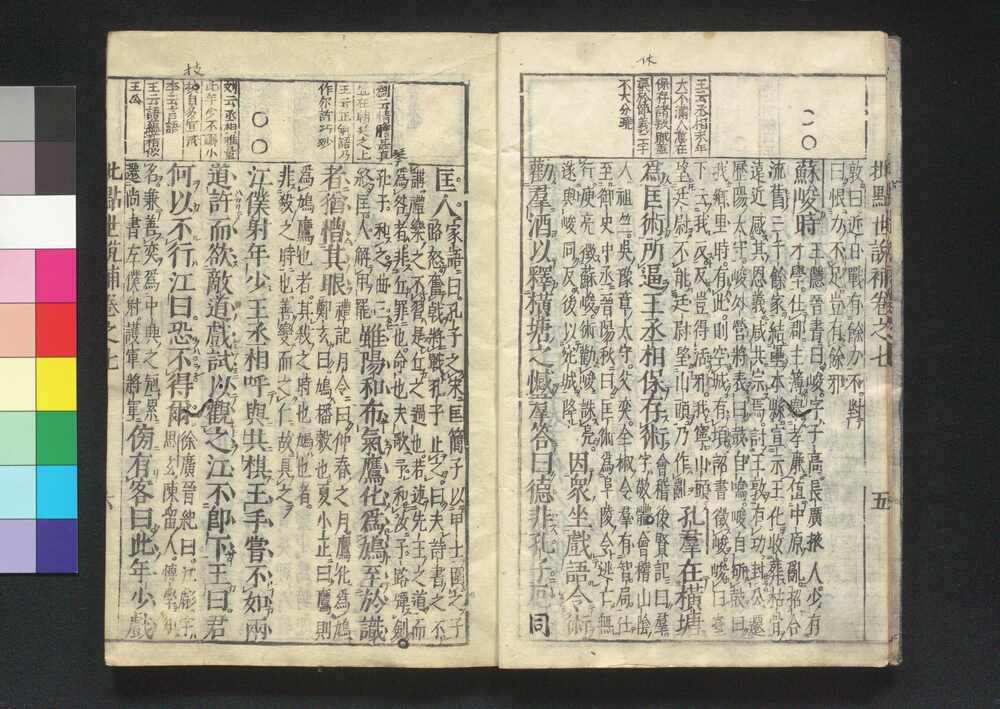 休
王云丞相末年
大不滿人意在
保存諸執職蓋
不大分疏
二〇
批點世說補卷之七 五
敦曰近日戰有餘力不對
曰恨力不足豈有餘邪
蘇峻時 王隱晉書曰峻字子高長廣掖人少有
才學仕郡主簿舉孝廉值中原亂招合
流舊三千餘家結壘本縣宣示王化收葬枯骨
遠近感其恩義咸共宗焉討王敦有功封公遷
歷陽太守峻外營將表曰鼓自鳴峻自斫鼓曰
我鄉里時有此則空城有頃詔書徵峻峻曰臺
下云我反反豈得活邪我寧山頭
望廷尉不能廷尉望山頭乃作亂 孔羣在橫塘
爲匡術所逼王丞相保存術 會稽後賢記曰羣
字敬休會稽山陰
人祖竺吳豫章太守父奕全椒令羣有智局仕
至御史中丞晉陽秋曰匡術爲阜陵令逃亡無
行庾亮徵蘇峻術勸峻誅亮
遂與峻同反後以宛城降 因衆坐戲語令術
勸羣酒以釋橫塘之憾羣答曰德非孔子厄同
技
劉云情勝甚眞
正在朝廷之上
王云正朝語乃
作尔語巧妙
〇〇
劉云丞相雅量
此年少不滿小
技自多宜戒
李云言語
王云語極精俊
王公
匡人 家語曰孔子之宋匡簡子以甲士圍之子
路怒奮戟將戰孔子止之曰夫詩書之不
講禮樂之不習是丘之過也若述先王之道而
爲咎者非丘罪也命也夫歌予和汝子路彈劍
孔子和之曲三
終匡人解甲罷 雖陽和布氣鷹化爲鳩至於識
者猶憎其眼 禮記月令曰仲春之月鷹化爲鳩
鄭玄曰鳩播穀也夏小正曰鷹則
爲鳩鷹也者其殺之時也鳩也者
非殺之時也善變而之仁故具之
江僕射年少王丞相呼與共棋王手嘗不如兩
道許而欲敵道戲試以觀之江不卽下王曰君
何以不行江曰恐不得爾 徐廣晉紀曰江虨字
思玄陳留人博學知
名兼善奕爲中興之冠累
遷尚書左僕射護軍將軍 傍有客曰此年少戲
批點世說補卷之七 六